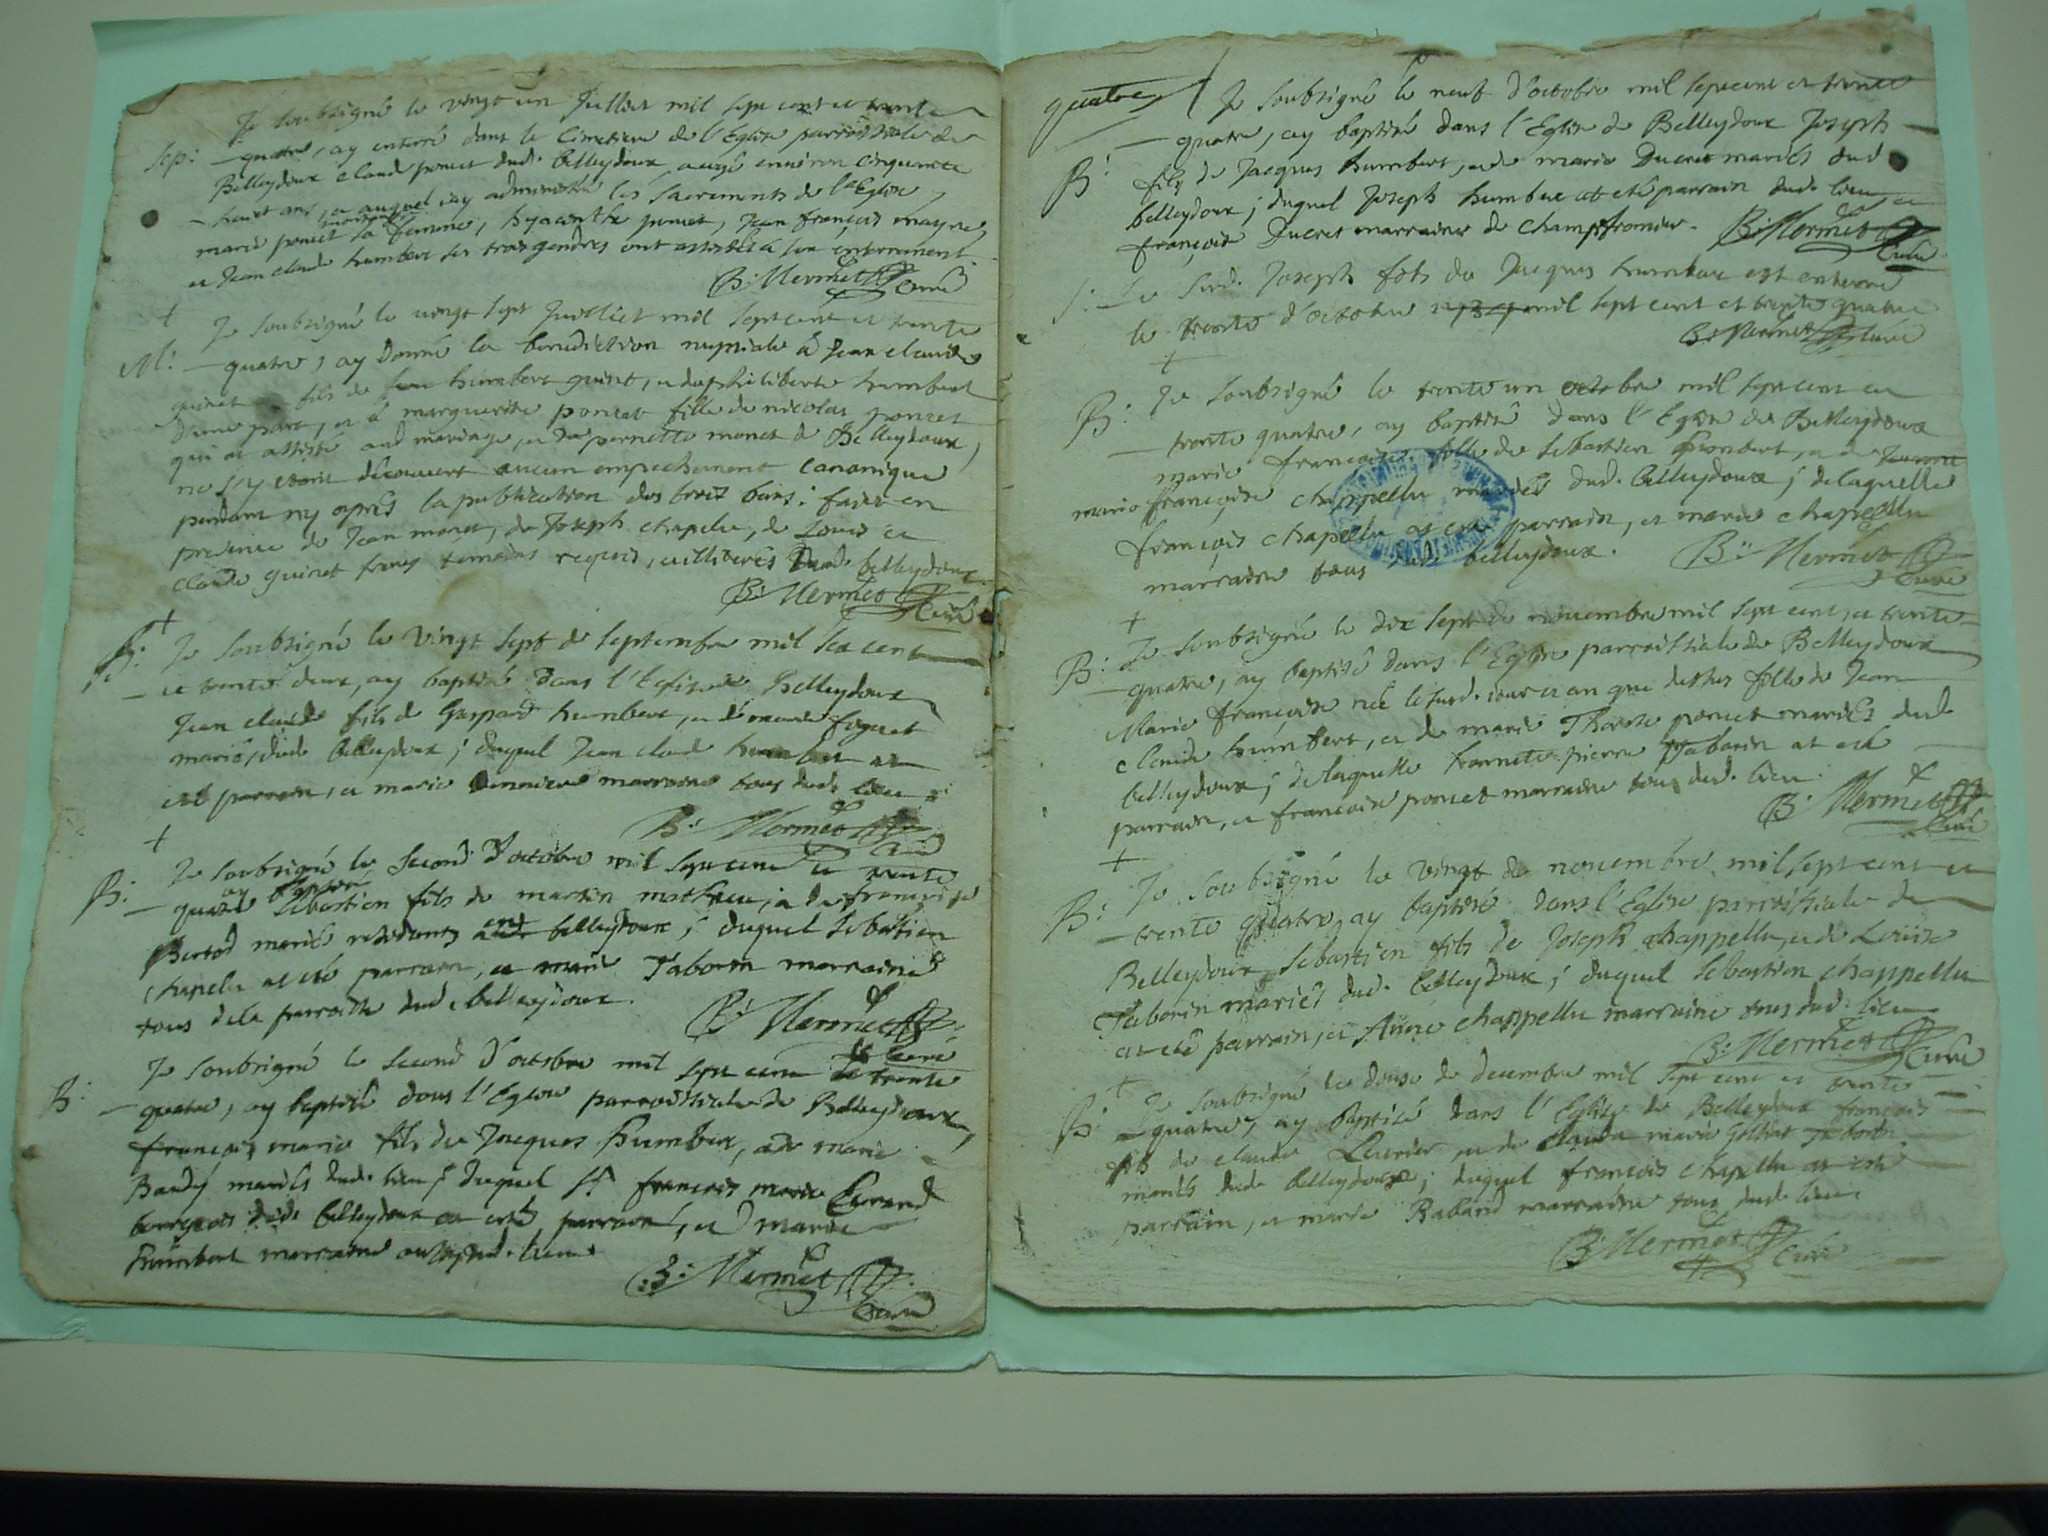 Je soubsigné le vingt un Juillet mil sept cent et trente
Sep: quatre, ay enterré dans le Cimetiere de l'Eglise parroissiale de
Belleydoux claude poncet dud. belleydoux, aagé environ cinquante
huict ans, et auquel iay administré les sacrements de l'Eglise,
marie poncet sa femme, hyacinthe poncet, Jean françois
et Jean claude humbert ses trois gendres ont assistés à son enterrement.
B: Mermet Curé
+
Je soubsigné le vingt sept Juillet mil sept cent et trente
M: quatre, ay donné la benediction nuptiale à Jean claude
guinet fils de humbert guinet, et de philiberte humbert
d'une part, et à marguerite poncet fille de nicolas poncet
qui at assisté aud mariage, et de pernette monet de Belleydoux,
ne s'y etant découvert aucun empechement canonique
pendant ny après la publication des trois bans: fait en
presence de Jean monet, de Joseph chapelu, de Louis et
claude guinet freres temoins requis, et illiterés dud. belleydoux
B: Mermet Curé
+
B: Je soubsigné le vingt sept de septembre mil sex cent
et trente deux, ay baptisé dans l'Eglise de Belleydoux
Jean claude fils de Gaspard humbert, et de marie
mariés dud. belleydoux; duquel Jean claude humbert at
esté parrain, et marie marraine tous dud. lieu.
B: Mermet Curé
+
Je soubsigné le second d'octobre mil sept cent et trente
ay baptisé
B: quatre Sebastien fils de martin mathieu, et de françoise
mariés residants belleydoux; duquel Sebastien
chapelu at eté parrain, et marie Taborin marraine
tous de la parroisse dud. belleydoux.
B: Mermet Curé
Je soubsigné le second d'octobre mil sept cent et trente
B: quatre, ay baptisé dans l'Eglise parroissiale de Belleydoux,
françois marie fils de Jacques humbert, et de marie
mariés dud. lieu; duquel Sr françois marie
bourgeois dud. belleydoux at esté parrain, et marie
humbert marraine aussy dud. lieu.
B: Mermet Curé
quatre Je soubsigné le neuf d'octobre mil sept cent et trente
quatre, ay baptisé dans l'Eglise de Belleydoux Joseph
B: fils de Jacques humbert, et de marie Ducret mariés dud
belleydoux; duquel Joseph humbert at eté parrain dud. lieu et
françoise Ducret marraine de champfromier. B: Mermet Curé
S: Le susd. Joseph fils de Jacques humbert est enterré
le trente d'octobre 1734 mil sept cent et trente quatre
B: Mermet Curé
+
B: Je soubsigné le trente un octobre mil sept cent et
trente quatre, ay baptisé dans l'Eglise de Belleydoux
marie françoise fille de Sebastien humbert, et de
marie françoise chappellu mariés dud. belleydoux; de laquelle
françois chapellu at eté parrain, et marie chapellu
marraine tous dud. belleydoux. B: Mermet Curé
+
B: Je soubsigné le dix sept de novembre mil sept cent, et trente
quatre, ay baptisé dans l'Eglise parroissiale de Belleydoux
Marie françoise née le susd. iour et an que dessus fille de Jean
claude humbert, et de marie Therese poncet mariés dud
belleydoux; de laquelle pierre Taborin at esté
parrain, et françoise poncet marraine tous dud. lieu.
B: Mermet Curé
+
B: Je soubsigné le vingt de novembre mil sept cent et
trente quatre, ay baptisé dans l'Eglise parroissiale de
Belleydoux Sebastien fils de Joseph chappellu, et de Louise
Taborin mariés dud. belleydoux; duquel Sebastien chappellu
at eté parrain, et Anne chappellu marraine tous dud. lieu
B: Mermet Curé
+
B: Je soubsigné le douse de decembre mil sept cent et trente
quatre, ay baptisé dans l'Eglise de Belleydoux françois
fils de claude et de claude marie
mariés dud. belleydoux; duquel françois chapellu at esté
parrain, et marie marraine tous dud. lieu
B: Mermet Curé